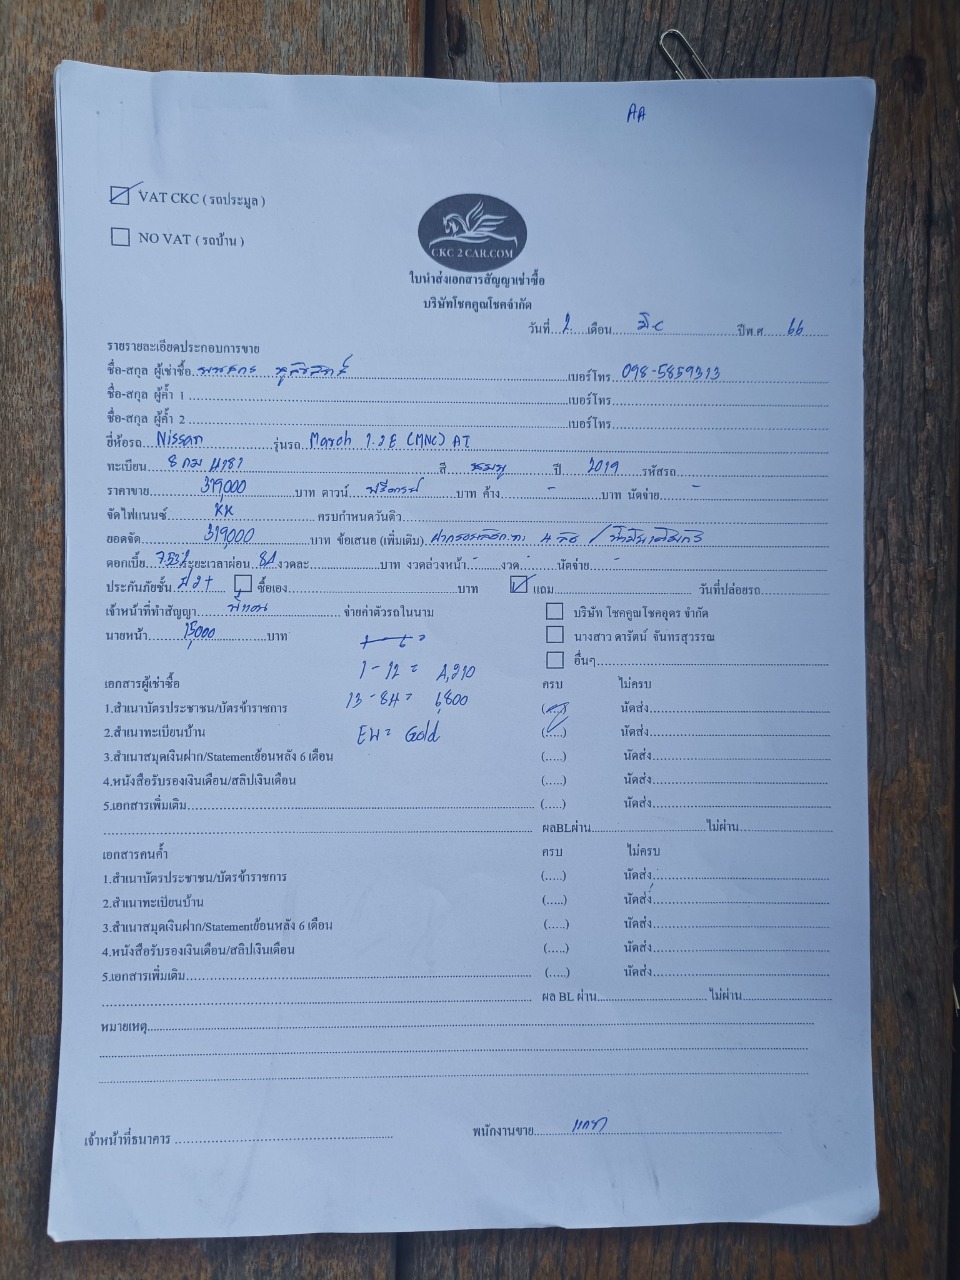 AA
VAT CKC ( รถประมูล )
NO VAT ( รถบ้าน )
CKC 2 CAR.COM
ใบนำส่งเอกสารสัญญาเช่าซื้อ
บริษัทโชคคูณโชคจำกัด
วันที่ 2 เดือน มี.ค ปีพ.ศ. 66
รายรายละเอียดประกอบการขาย
ชื่อ-สกุล ผู้เช่าซื้อ เบอร์โทร 098-5859313
ชื่อ-สกุล ผู้ค้ำ 1 เบอร์โทร
ชื่อ-สกุล ผู้ค้ำ 2 เบอร์โทร
ยี่ห้อรถ Nissan รุ่นรถ March 1.2E (MNC) AT
ทะเบียน 8 กม 4181 สี ชมพู ปี 2019 รหัสรถ
ราคาขาย 319,000 บาท ดาวน์ ฟรีดาวน์ บาท ค้าง - บาท นัดจ่าย -
จัดไฟแนนซ์ KK ครบกำหนดวันติว
ยอดจัด 319,000 บาท ข้อเสนอ (เพิ่มเติม)
ดอกเบี้ย 7.53% ระยะเวลาผ่อน 84 งวดละ บาท งวดล่วงหน้า - งวด - นัดจ่าย -
ประกันภัยชั้น ป 2+ ซื้อเอง บาท แถม วันที่ปล่อยรถ
เจ้าหน้าที่ทำสัญญา จ่ายค่าตัวรถในนาม บริษัท โชคคูณโชคอุดร จำกัด
นายหน้า 15,000 บาท นางสาว ดารัตน์ จันทรสุวรรณ
อื่นๆ
1-12 = 4,210
13-84 = 6,800
EW = Gold
เอกสารผู้เช่าซื้อ ครบ ไม่ครบ
1.สำเนาบัตรประชาชน/บัตรข้าราชการ (....) นัดส่ง
2.สำเนาทะเบียนบ้าน (....) นัดส่ง
3.สำเนาสมุดเงินฝาก/Statementย้อนหลัง 6 เดือน (.....) นัดส่ง
4.หนังสือรับรองเงินเดือน/สลิปเงินเดือน (.....) นัดส่ง
5.เอกสารเพิ่มเติม (.....) นัดส่ง
ผลBLผ่าน ไม่ผ่าน
เอกสารคนค้ำ ครบ ไม่ครบ
1.สำเนาบัตรประชาชน/บัตรข้าราชการ (.....) นัดส่ง
2.สำเนาทะเบียนบ้าน (.....) นัดส่ง
3.สำเนาสมุดเงินฝาก/Statementย้อนหลัง 6 เดือน (.....) นัดส่ง
4.หนังสือรับรองเงินเดือน/สลิปเงินเดือน (.....) นัดส่ง
5.เอกสารเพิ่มเติม (.....) นัดส่ง
ผล BL ผ่าน ไม่ผ่าน
หมายเหตุ
เจ้าหน้าที่ธนาคาร พนักงานขาย